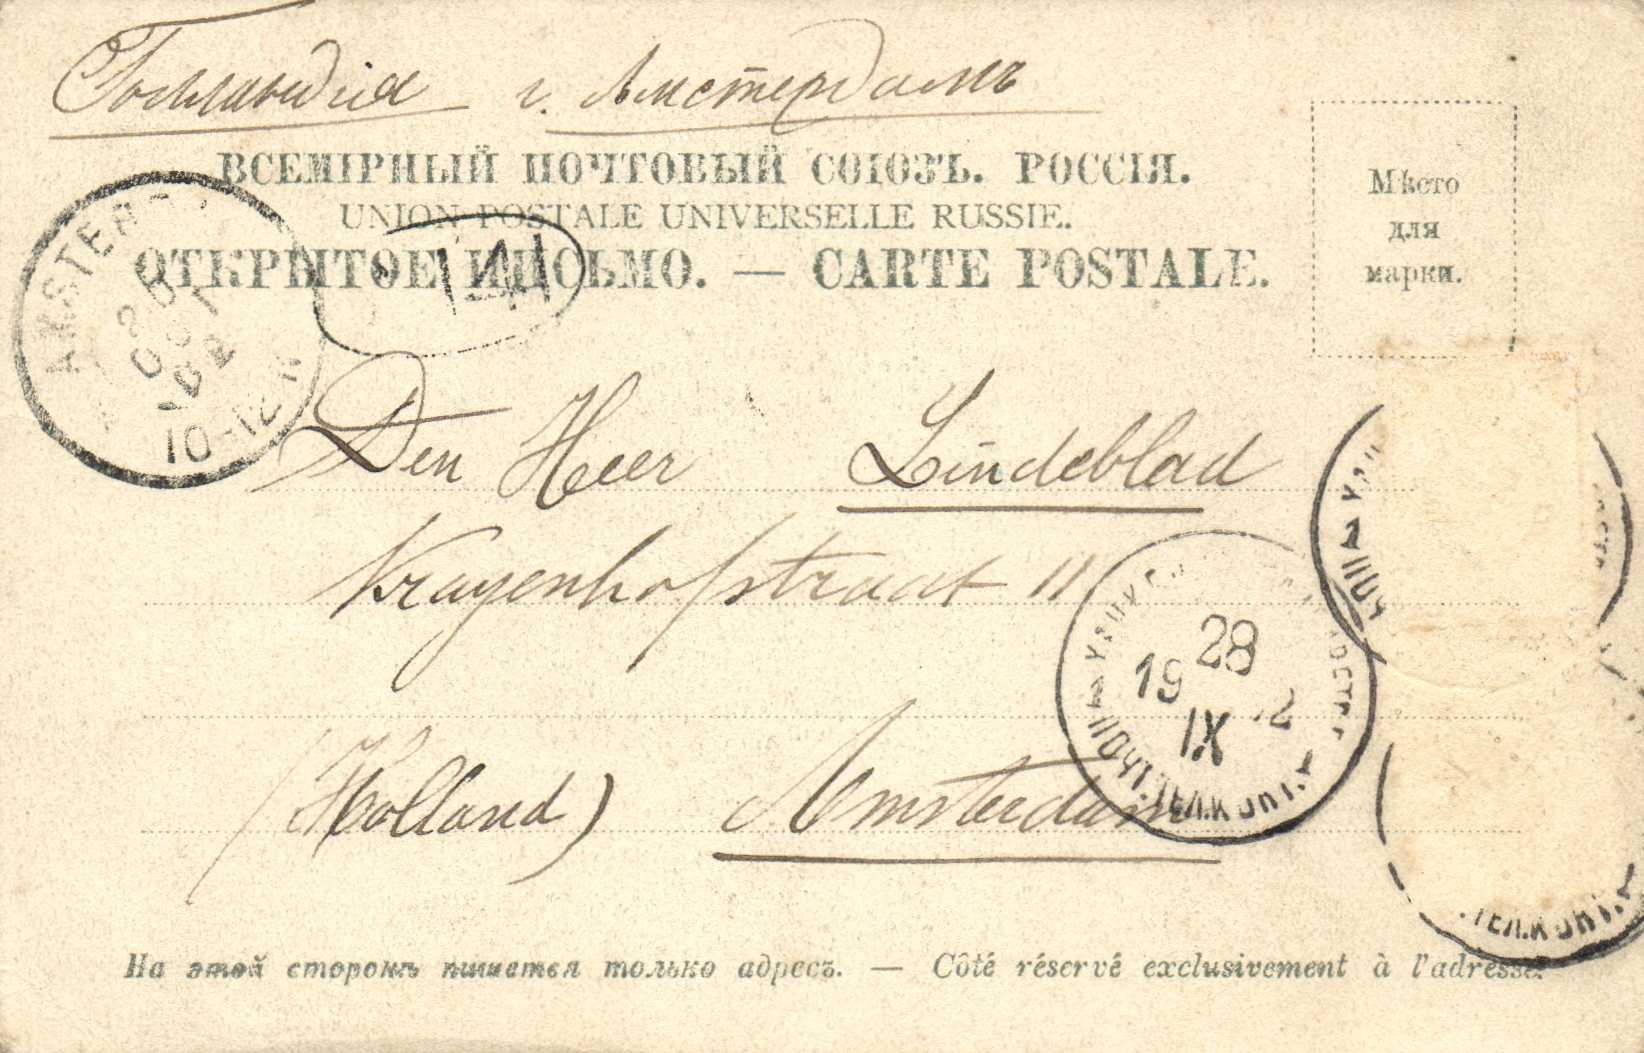 Голландія г. Амстердамъ
ВСЕМІРНЫЙ ПОЧТОВЫЙ СОЮЗЪ. РОССІЯ.
UNION POSTALE UNIVERSELLE RUSSIE.
ОТКРЫТОЕ ПИСЬМО. — CARTE POSTALE.
Мѣсто
для
марки.
14
AMSTERD
10-12
Den Heer Lindeblad
Krayenhofstraat 11
28
19
IX
(Holland) Amsterdam
На этой сторонѣ пишется только адресъ. — Côté réservé exclusivement à l'adresse.